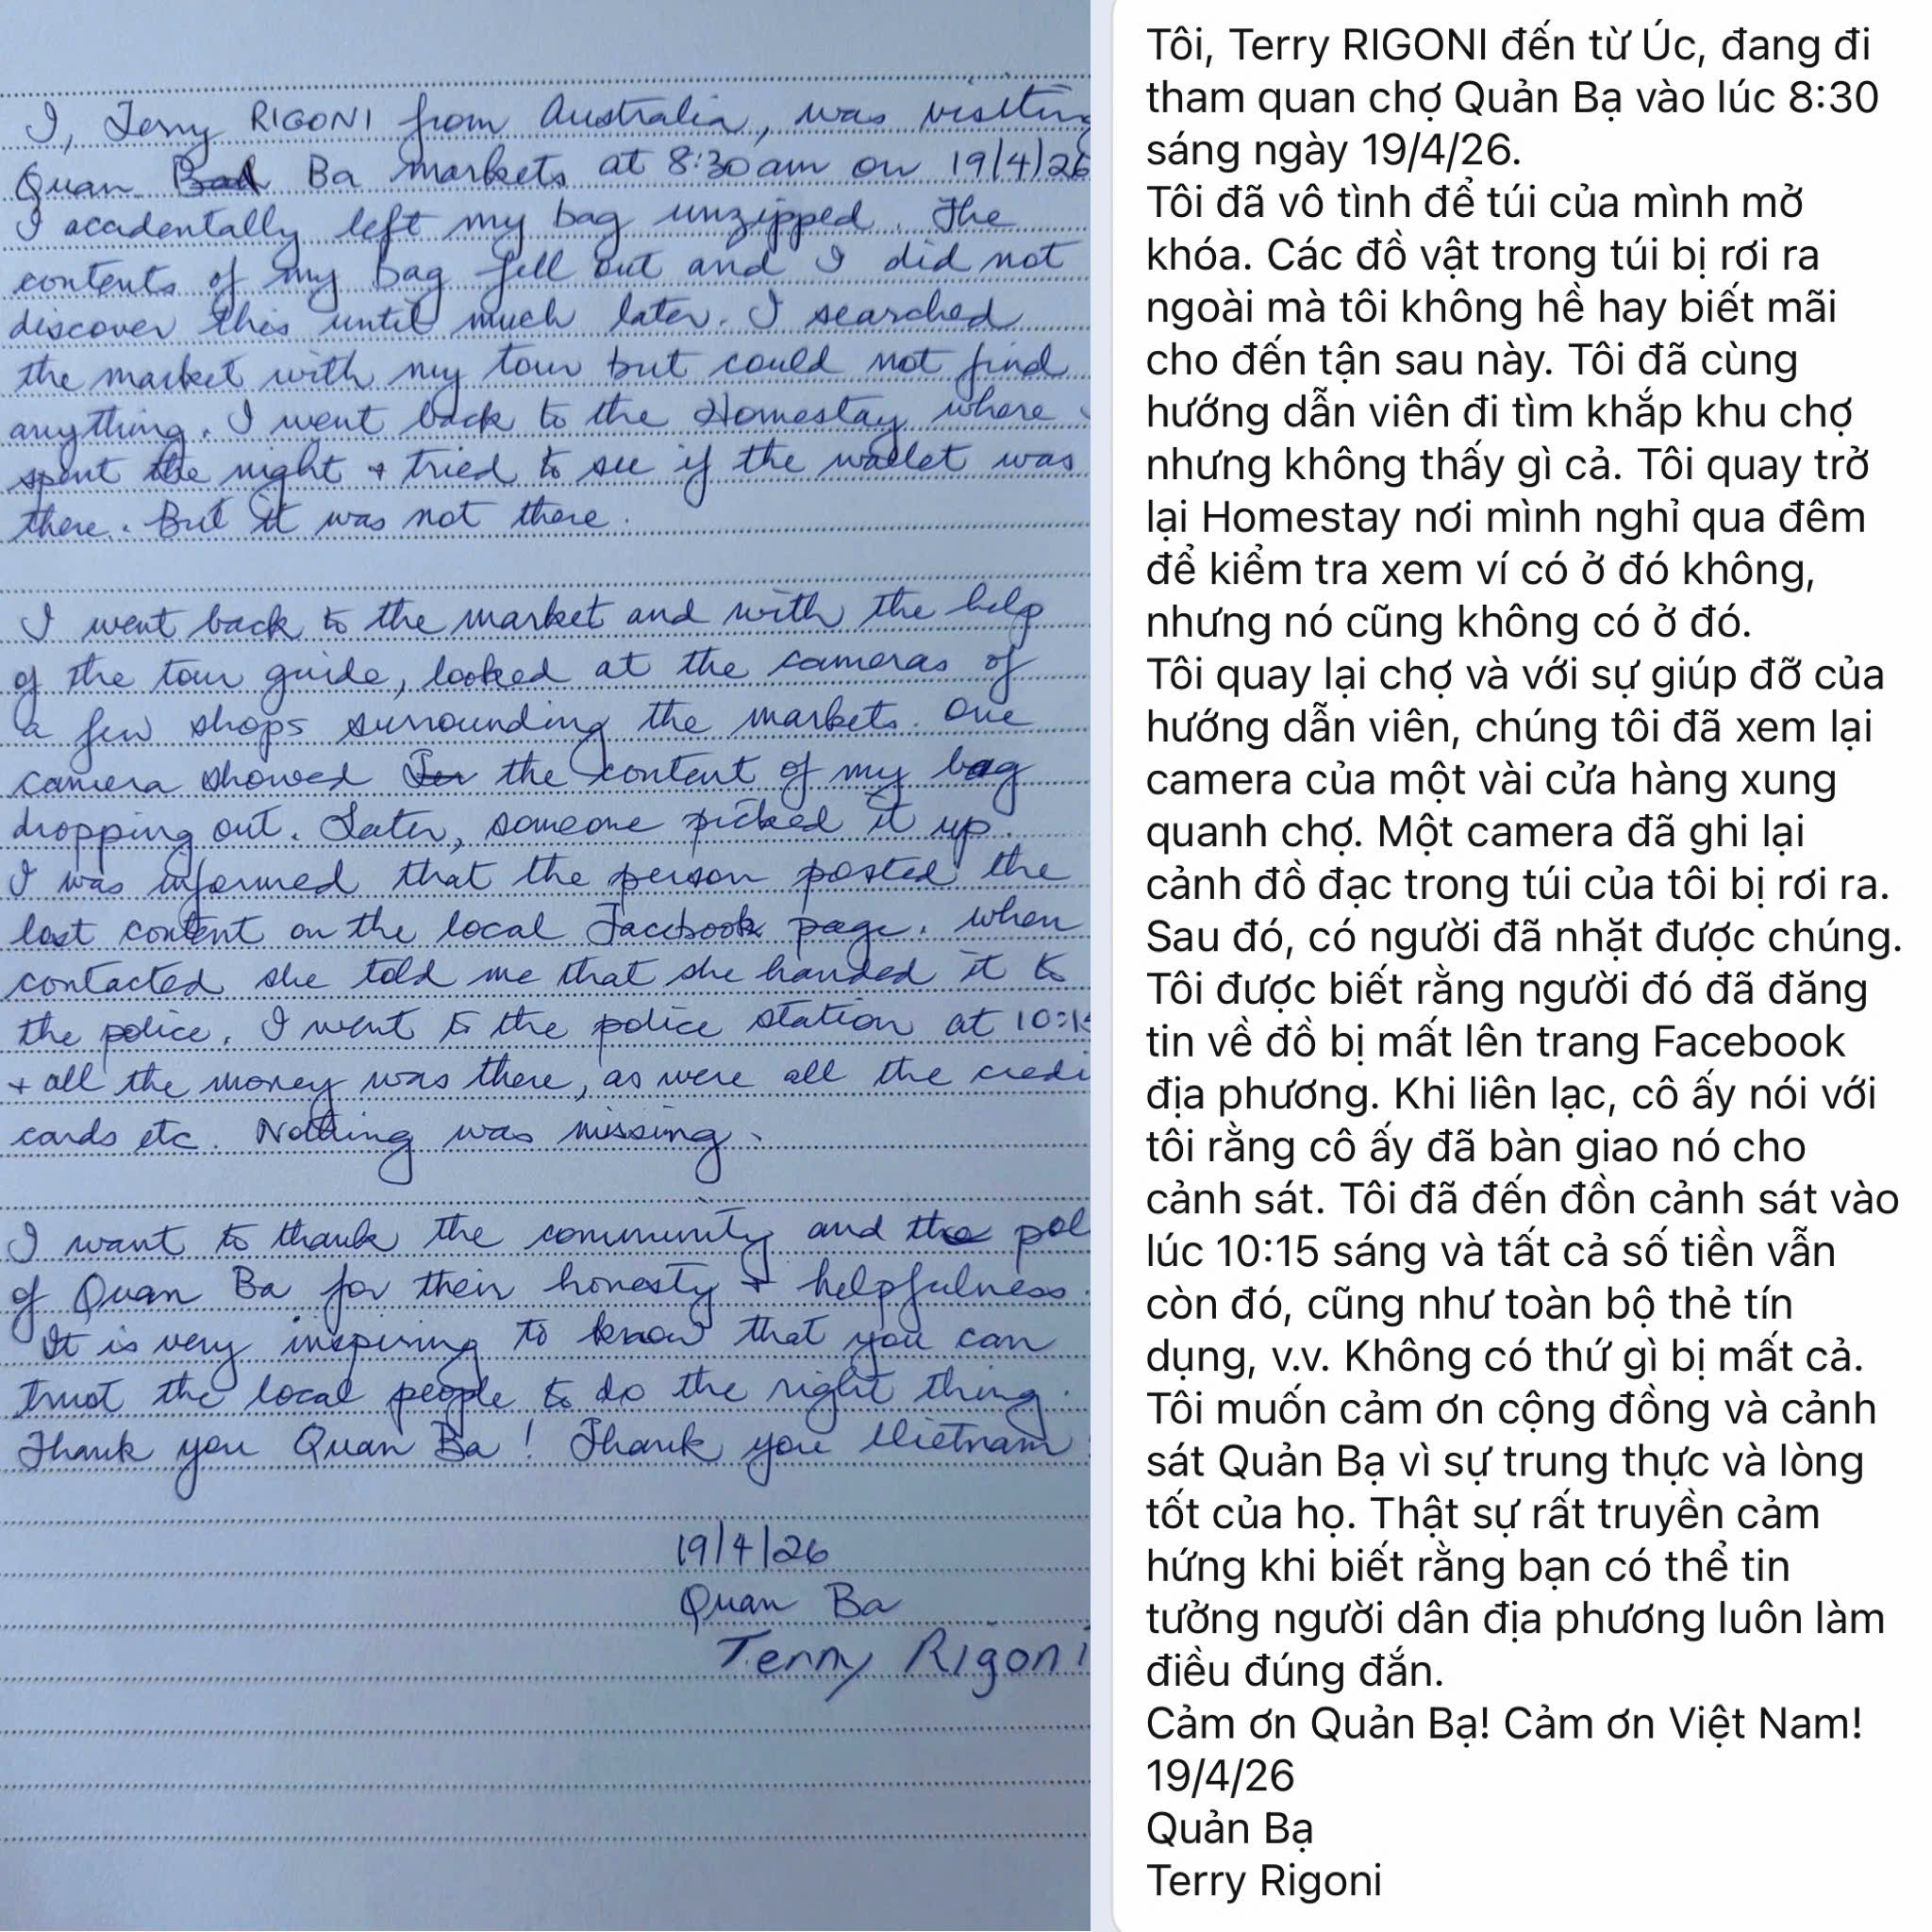 I, Terry RIGONI from Australia, was visiting
Quan Ba markets at 8:30am on 19/4/26
I accidentally left my bag unzipped. The
contents of my bag fell out and I did not
discover this until much later. I searched
the market with my tour but could not find
anything. I went back to the Homestay where
spent the night + tried to see if the wallet was
there. But it was not there.
I went back to the market and with the help
of the tour guide, looked at the cameras of
a few shops surrounding the markets. One
camera showed the content of my bag
dropping out. Later, someone picked it up.
I was informed that the person posted the
lost content on the local Facebook page. When
contacted she told me that she handed it to
the police. I went to the police station at 10:15
+ all the money was there, as were all the credi
cards etc. Nothing was missing.
I want to thank the community and the pol
of Quan Ba for their honesty + helpfulness.
It is very inspiring to know that you can
trust the local people to do the right thing.
Thank you Quan Ba! Thank you Vietnam
19/4/26
Quan Ba
Terry Rigoni
Tôi, Terry RIGONI đến từ Úc, đang đi
tham quan chợ Quản Bạ vào lúc 8:30
sáng ngày 19/4/26.
Tôi đã vô tình để túi của mình mở
khóa. Các đồ vật trong túi bị rơi ra
ngoài mà tôi không hề hay biết mãi
cho đến tận sau này. Tôi đã cùng
hướng dẫn viên đi tìm khắp khu chợ
nhưng không thấy gì cả. Tôi quay trở
lại Homestay nơi mình nghỉ qua đêm
để kiểm tra xem ví có ở đó không,
nhưng nó cũng không có ở đó.
Tôi quay lại chợ và với sự giúp đỡ của
hướng dẫn viên, chúng tôi đã xem lại
camera của một vài cửa hàng xung
quanh chợ. Một camera đã ghi lại
cảnh đồ đạc trong túi của tôi bị rơi ra.
Sau đó, có người đã nhặt được chúng.
Tôi được biết rằng người đó đã đăng
tin về đồ bị mất lên trang Facebook
địa phương. Khi liên lạc, cô ấy nói với
tôi rằng cô ấy đã bàn giao nó cho
cảnh sát. Tôi đã đến đồn cảnh sát vào
lúc 10:15 sáng và tất cả số tiền vẫn
còn đó, cũng như toàn bộ thẻ tín
dụng, v.v. Không có thứ gì bị mất cả.
Tôi muốn cảm ơn cộng đồng và cảnh
sát Quản Bạ vì sự trung thực và lòng
tốt của họ. Thật sự rất truyền cảm
hứng khi biết rằng bạn có thể tin
tưởng người dân địa phương luôn làm
điều đúng đắn.
Cảm ơn Quản Bạ! Cảm ơn Việt Nam!
19/4/26
Quản Bạ
Terry Rigoni